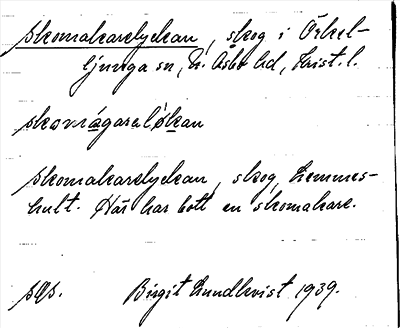 Skomakarelyckan, skog i Örkel-
ljunga sn, N. Åsbo hd, Krist. l.
skomágaraløkan
Skomakarelyckan, skog, Lemmes-
hult. Här har bott en skomakare.
Birgit Lundkvist 1939.